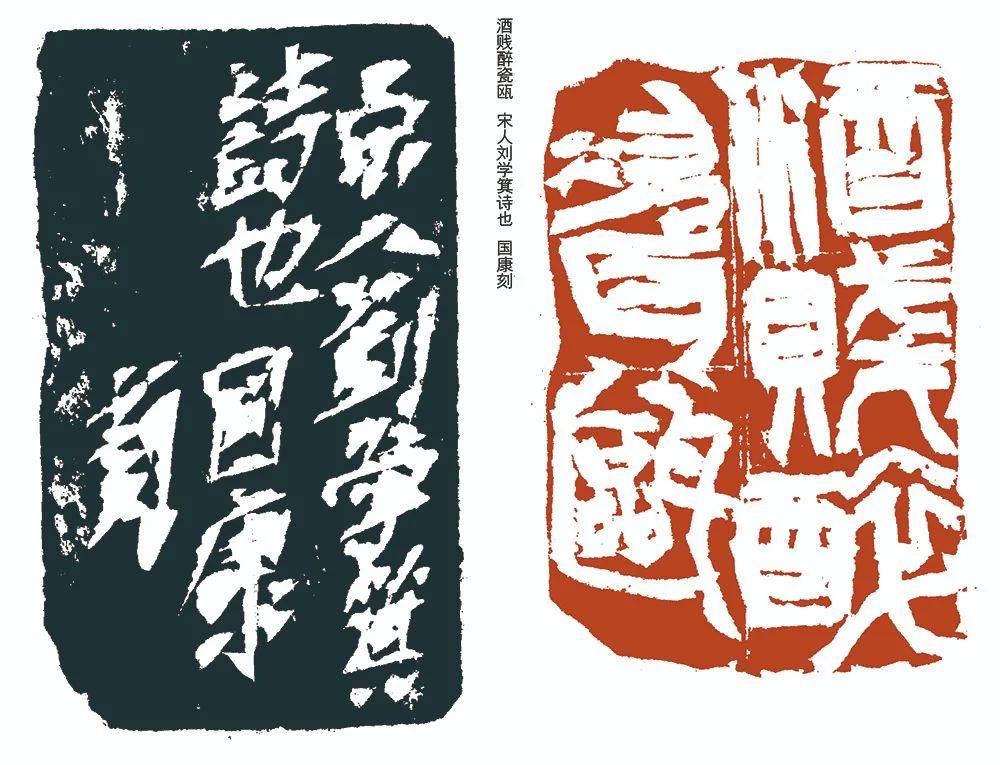 酒賤醉瓷甌
酒贱醉瓷瓯 宋人刘学箕诗也 国康刻
宋人劉學箕
詩也 國康
刻